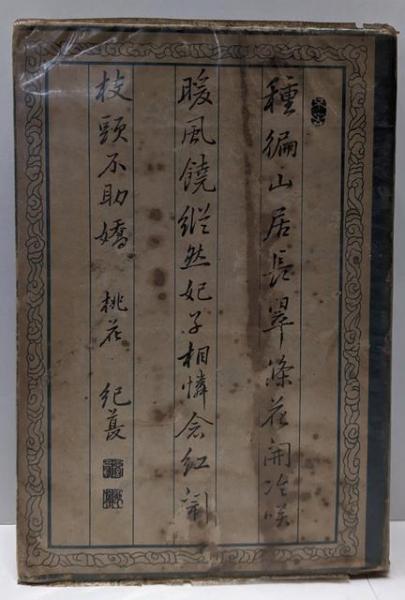 種徧山居長翠條花開冷咲
暖風饒縱然妃子相憐念紅鬧
枝頭不助嬌 桃花 紀